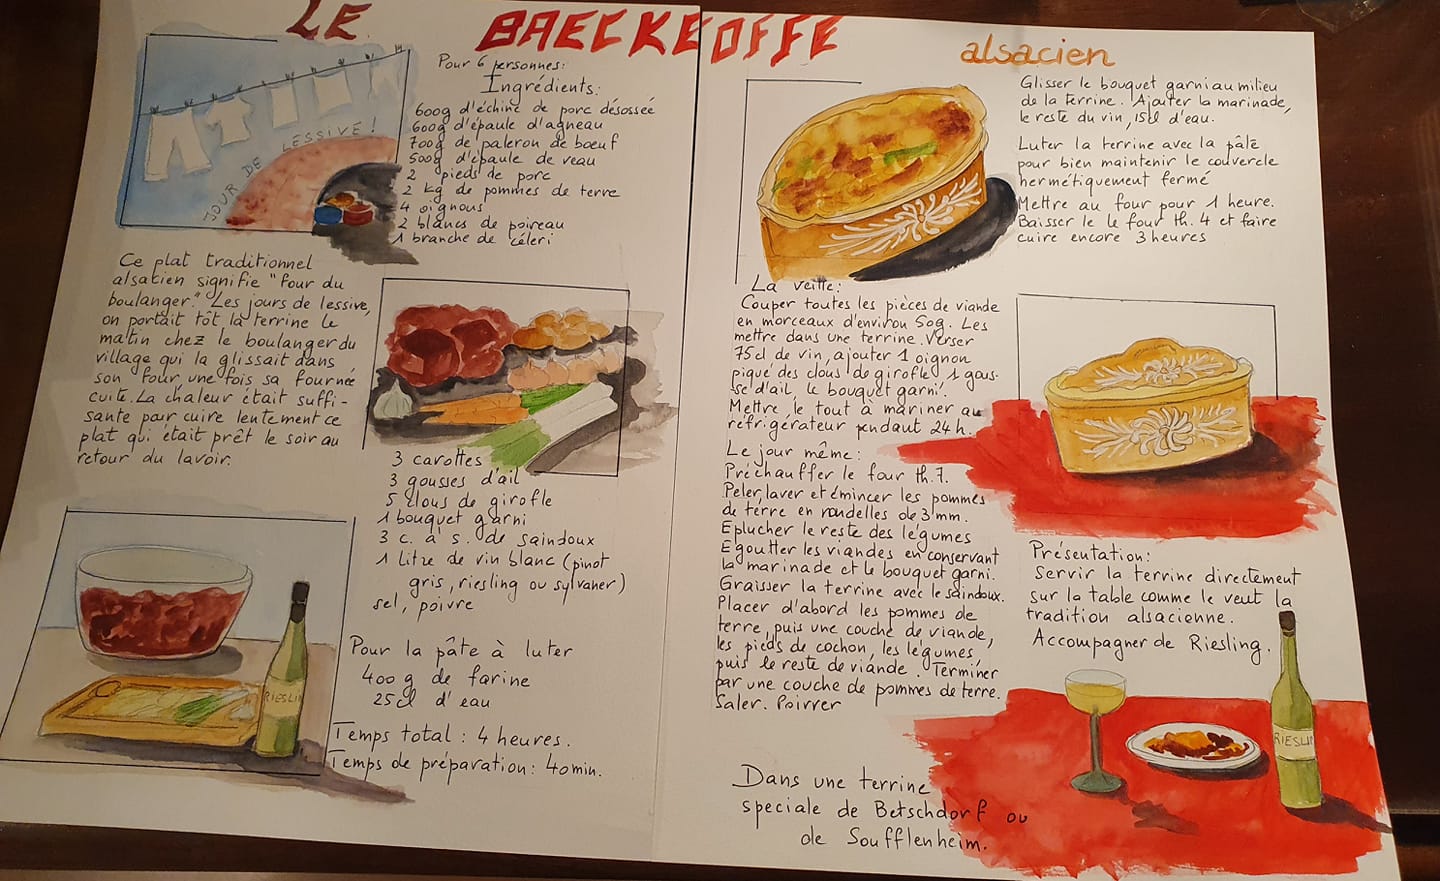 LE BAECKEOFFE alsacien
JOUR DE LESSIVE!
Pour 6 personnes:
Ingrédients:
600g d'échine de porc désossée
600g d'épaule d'agneau
700g de paleron de boeuf
500g d'épaule de veau
2 pieds de porc
2 kg de pommes de terre
4 oignons
2 blancs de poireau
1 branche de céleri
Ce plat traditionnel
alsacien signifie "four du
boulanger." Les jours de lessive,
on portait tôt la terrine le
matin chez le boulanger du
village qui la glissait dans
son four une fois sa fournée
cuite. La chaleur était suffi-
sante pour cuire lentement ce
plat qui était prêt le soir au
retour du lavoir.
3 carottes
3 gousses d'ail
5 clous de girofle
1 bouquet garni
3 c. à s. de saindoux
1 litre de vin blanc (pinot
gris, riesling ou sylvaner)
sel, poivre
Pour la pâte à luter
400 g de farine
25 cl d'eau
Temps total : 4 heures.
Temps de préparation : 40 min.
RIESLIN
La veille:
Couper toutes les pièces de viande
en morceaux d'environ 50g. Les
mettre dans une terrine. Verser
75cl de vin, ajouter 1 oignon
piqué des clous de girofle 1 gous-
se d'ail, le bouquet garni.
Mettre le tout à mariner au
réfrigérateur pendant 24 h.
Le jour même:
Préchauffer le four th. 7.
Peler, laver et émincer les pommes
de terre en rondelles de 3 mm.
Eplucher le reste des légumes
Egoutter les viandes en conservant
la marinade et le bouquet garni.
Graisser la terrine avec le saindoux.
Placer d'abord les pommes de
terre, puis une couche de viande,
les pieds de cochon, les légumes
puis le reste de viande. Terminer
par une couche de pommes de terre.
Saler. Poivrer
Dans une terrine
speciale de Betschdorf ou
de Soufflenheim.
Glisser le bouquet garni au milieu
de la terrine. Ajouter la marinade,
le reste du vin, 15cl d'eau.
Luter la terrine avec la pâte
pour bien maintenir le couvercle
hermétiquement fermé
Mettre au four pour 1 heure.
Baisser le le four th. 4 et faire
cuire encore 3 heures
Présentation:
Servir la terrine directement
sur la table comme le veut la
tradition alsacienne.
Accompagner de Riesling.
RIESLIN